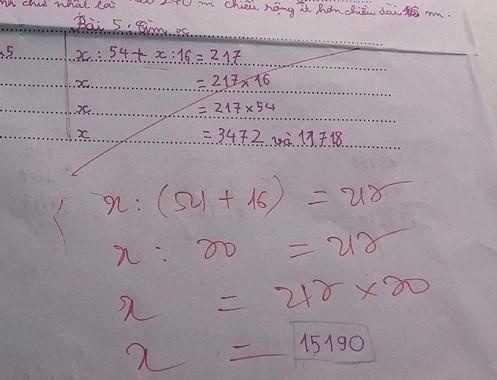 nh chữ nhật là 240 m chiều rộng ít hơn chiều dài m.
Bài 5. Tìm x
.5 x : 54 + x : 16 = 217
x = 217 x 16
x = 217 x 54
x = 3472 và 11718
x : (54 + 16) = 217
x : 70 = 217
x = 217 x 70
x = 15190